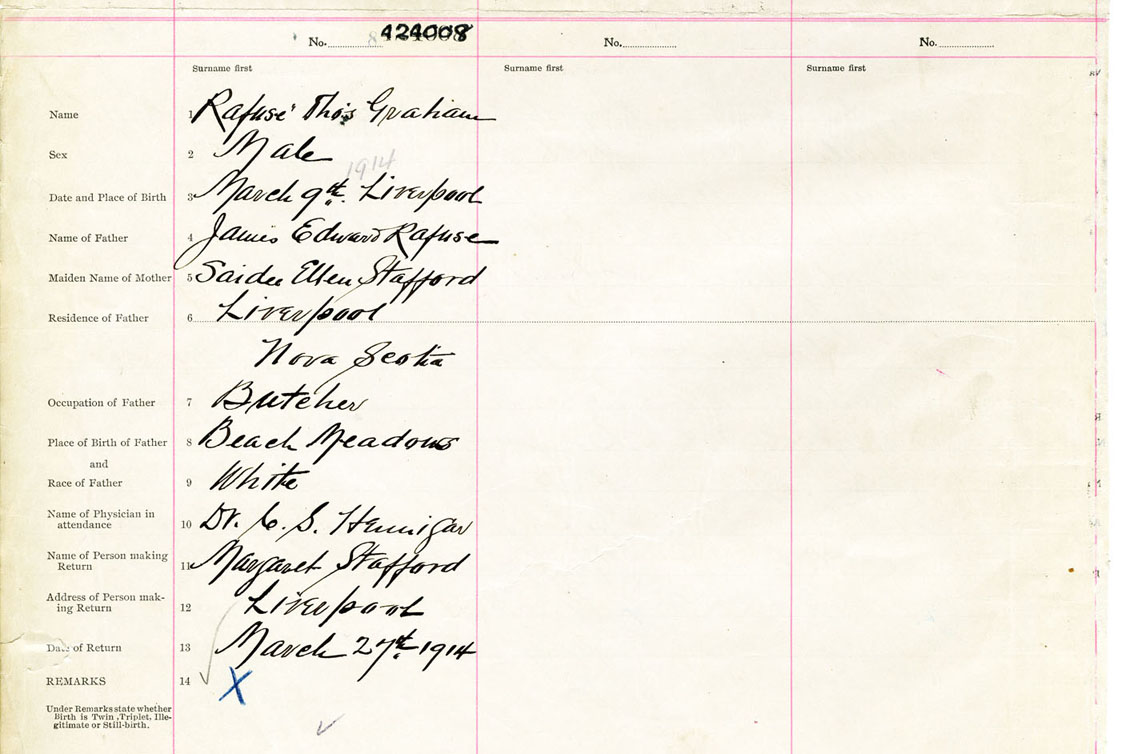 No. 424008 No. No.
Surname first Surname first Surname first
Name 1 Rafuse Tho's Graham
Sex 2 Male
1914
Date and Place of Birth 3 March 9th. Liverpool
Name of Father 4 James Edward Rafuse
Maiden Name of Mother 5 Saidee Ellen Stafford
Residence of Father 6 Liverpool
Nova Scotia
Occupation of Father 7 Butcher
Place of Birth of Father 8 Beach Meadows
and
Race of Father 9 White
Name of Physician in
attendance 10 Dr. C. S. Hennigar
Name of Person making
Return 11 Margaret Stafford
Address of Person mak-
ing Return 12 Liverpool
Date of Return 13 March 27th. 1914
REMARKS 14 X
Under Remarks state whether
Birth is Twin, Triplet, Ille-
gitimate or Still-birth.